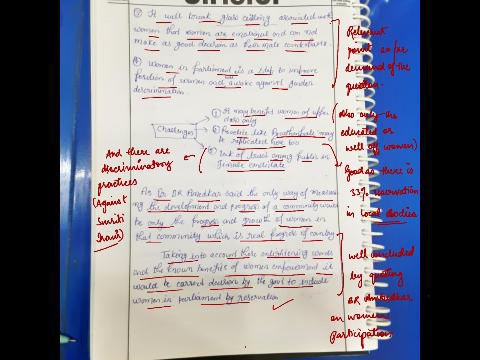 ③ It will break glass ceiling associated with
women that women are emotional and can not
make as good decision as their male counterparts.
④ Women in parliament is a step to improve
position of women and awake against gender
discrimination.
Challenges
① It may benefit women of upper
class only
② Practice like may
be replicated here too
③ Lack of trust among public in
female candidate
As Dr BR Ambedkar said the only way of measuring
the development and progress of a community would
be only the progress and growth of women in
that community which is real progress of country
Taking into account these enlightening words
and the known benefits of women empowerment it
would be correct decision by the govt to include
women in parliament by reservation
Relevant
point as per
demand of the
question
Also only the
educated or
well off women)
Good as there is
33% reservation
in local bodies
well concluded
by quoting
BR Ambedkar
on women
Participation
And there are
discriminatory
practices
(Against
Smriti
Irani)